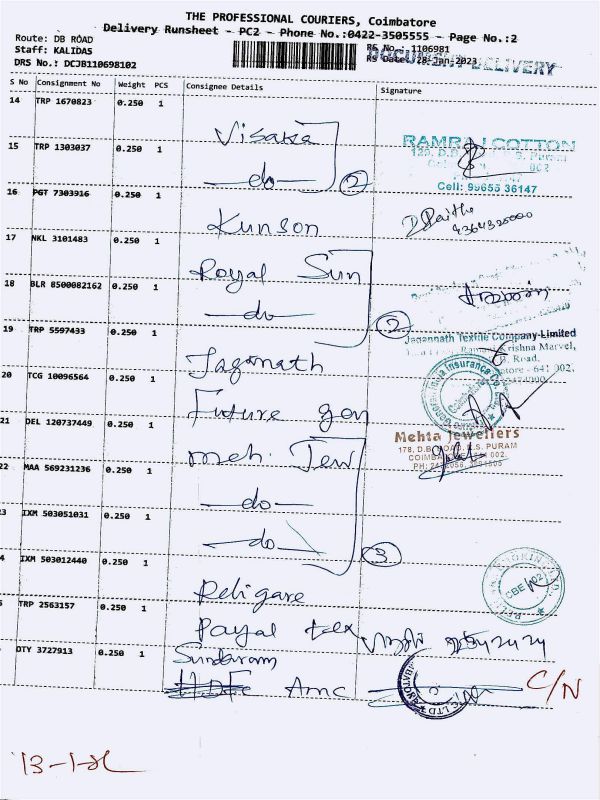 THE PROFESSIONAL COURIERS, Coimbatore
Delivery Runsheet - PC2 - Phone No.:0422-3505555 - Page No.:2
Route: DB ROAD
Staff: KALIDAS
DRS No.: DCJB110698102
RS No.: 1106981
RS Date: 28-Jan-2023
DOCUMENT DELIVERY
S No Consignment No Weight PCS Consignee Details Signature
14 TRP 1670823 0.250 1 Visaka
15 TRP 1303037 0.250 1 -do- 2
RAMRAJ COTTON
S. Puram
002
Cell: 99655 36147
16 PGT 7303916 0.250 1 Kunson
17 NKL 3101483 0.250 1 Royal Sun
18 BLR 8500082162 0.250 1 -do- 2
19 TRP 5597433 0.250 1 Jaganath
Jagannath Textile Company Limited
Krishna Marvel,
Road,
641 002.
20 TCG 10096564 0.250 1 Future gen
India Insurance Co
Coimbatore
21 DEL 120737449 0.250 1 meh. Jew
Mehta Jewellers
178, D.B. ROAD, R.S. PURAM
22 MAA 569231236 0.250 1 -do-
23 IXM 503051031 0.250 1 -do- 3
24 IXM 503012440 0.250 1 Religare
CBE
TRP 2563157 0.250 1 Payal tex
OTY 3727913 0.250 1 Sundaram
HDFC Amc
C/N